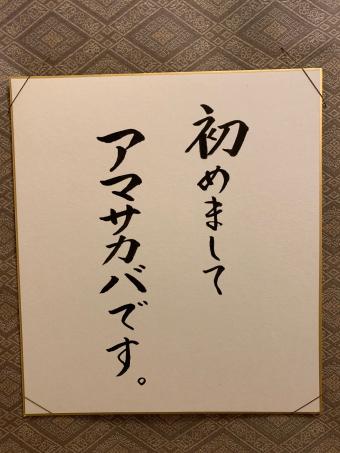 初めまして
アマサカバです。